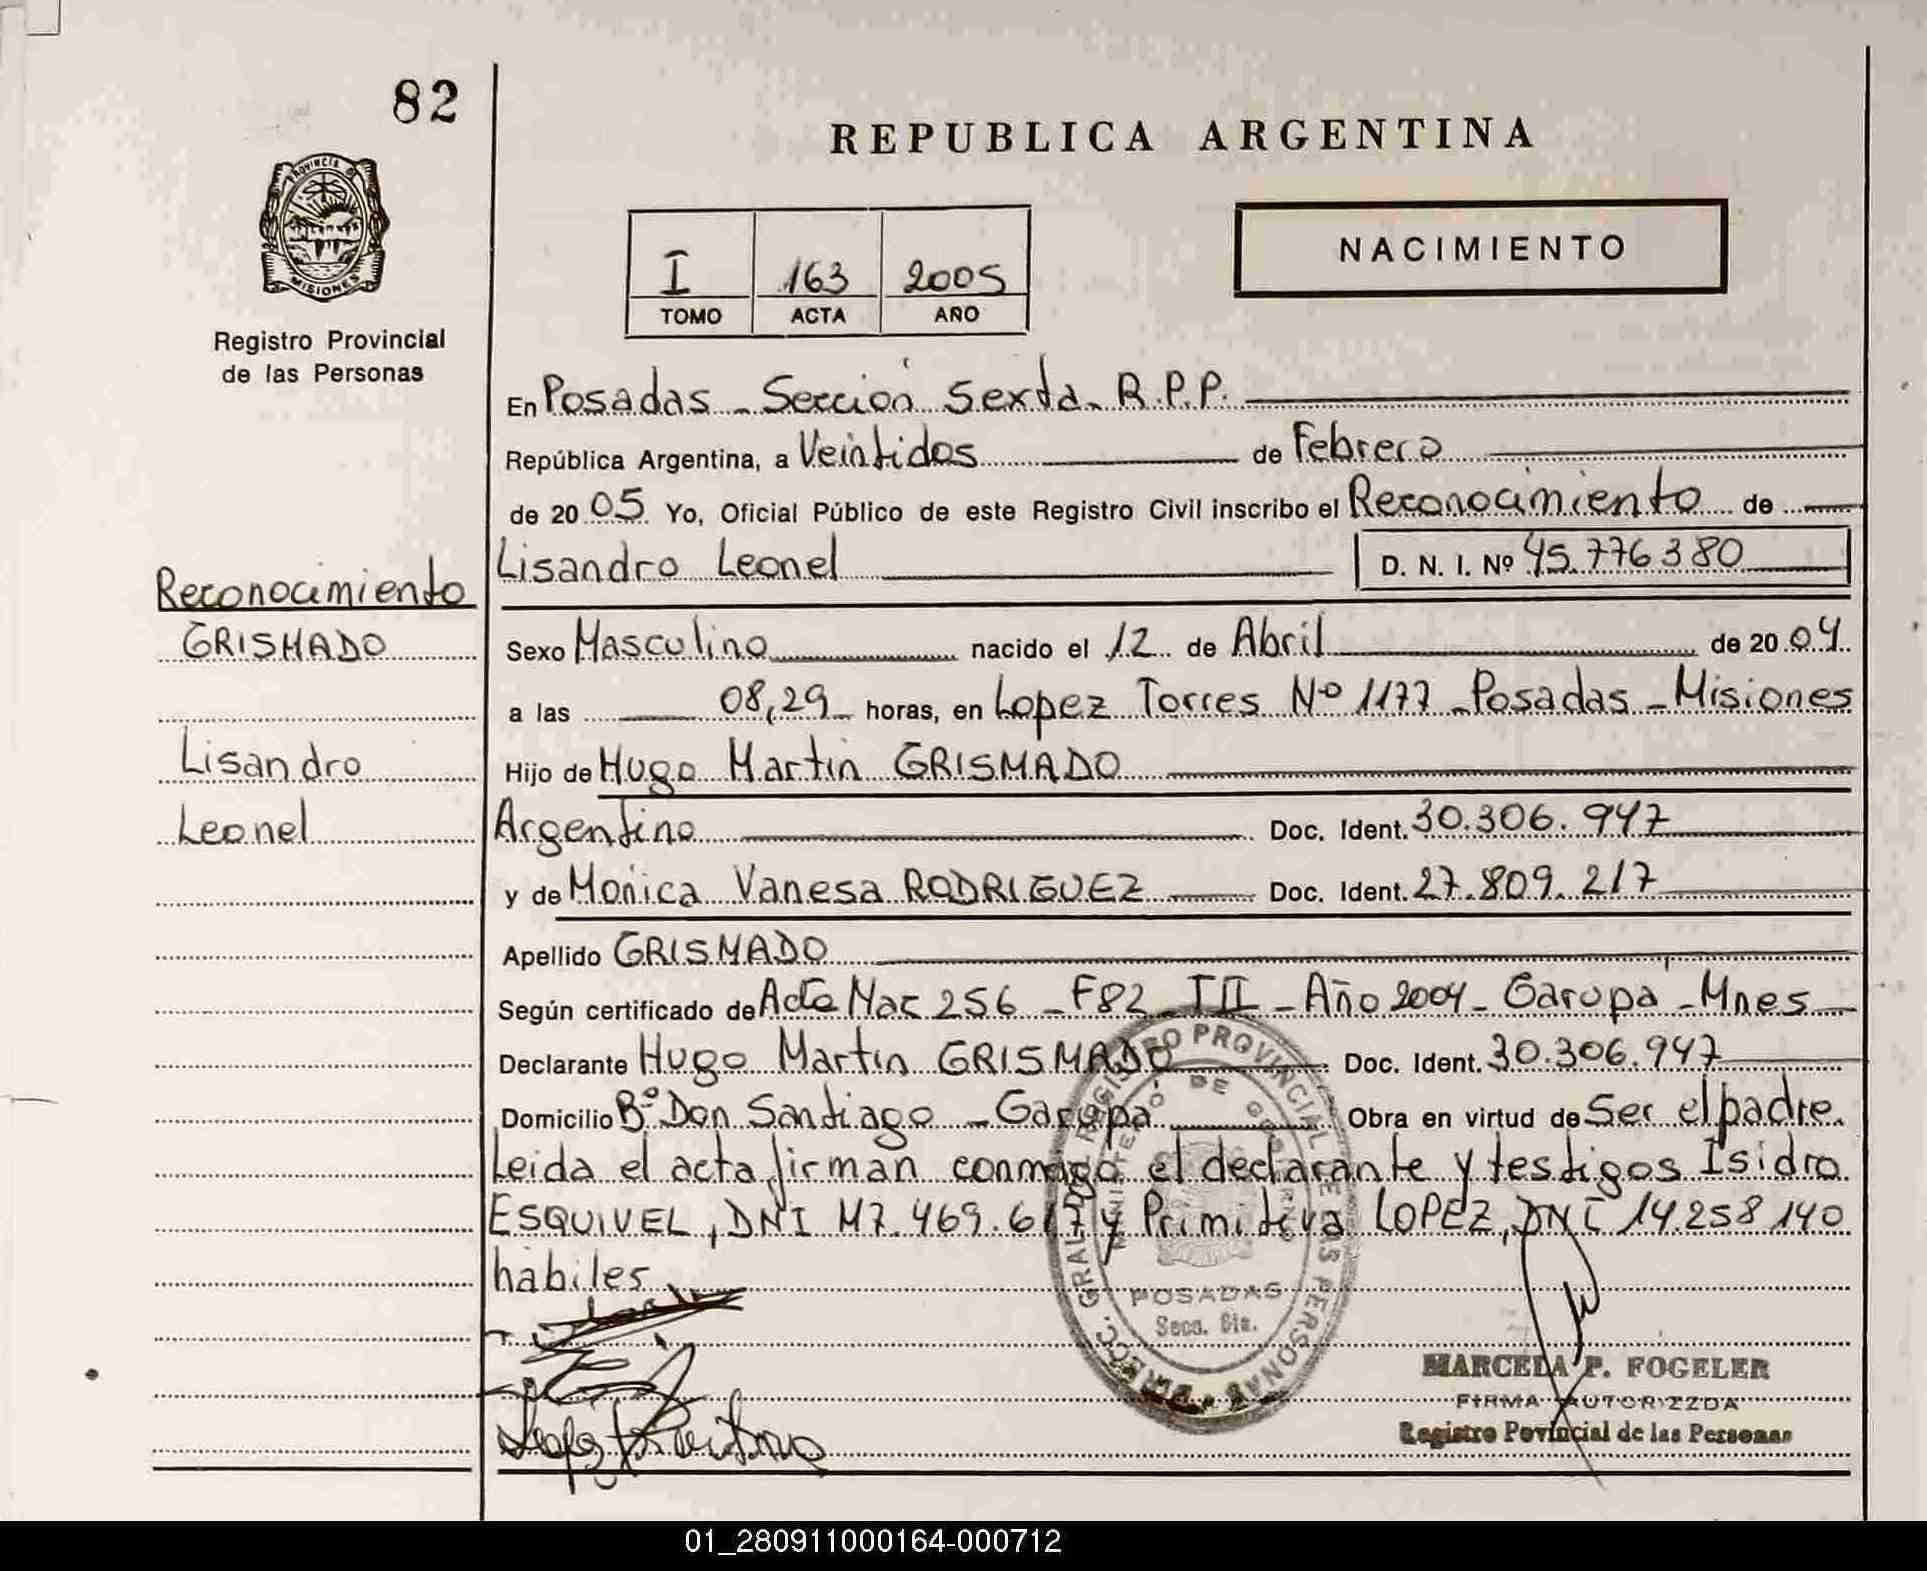 82
REPUBLICA ARGENTINA
PROVINCIA DE
MISIONES
Registro Provincial
de las Personas
I 163 2005
TOMO ACTA AÑO
NACIMIENTO
En Posadas - Sección Sexta - R.P.P.
República Argentina, a Veintidos de Febrero
de 2005 Yo, Oficial Público de este Registro Civil inscribo el Reconocimiento de
Lisandro Leonel D. N. I. Nº 45.776380
Reconocimiento
GRISMADO
Lisandro
Leonel
Sexo Masculino nacido el 12 de Abril de 2004
a las 08,29 horas, en Lopez Torres Nº 1177 - Posadas - Misiones
Hijo de Hugo Martin GRISMADO
Argentino Doc. Ident. 30.306.947
y de Monica Vanesa RODRIGUEZ Doc. Ident. 27.809.217
Apellido GRISMADO
Según certificado de Acta Nac 256 - F82 - TII - Año 2004 - Garupá - Mnes
Declarante Hugo Martin GRISMADO Doc. Ident. 30.306.947
Domicilio Bº Don Santiago - Garupá Obra en virtud de Ser el padre.
Leida el acta firman conmigo el declarante y testigos Isidro
ESQUIVEL, DNI M7.469.617 y Primitiva LOPEZ, DNI 14.258140
habiles
REGISTRO PROVINCIAL DE LAS PERSONAS
MINISTERIO DE GOBIERNO
POSADAS
Secc. 6ta.
MARCELA P. FOGELER
FIRMA AUTORIZZDA
Registro Povincial de las Personas
01_280911000164-000712